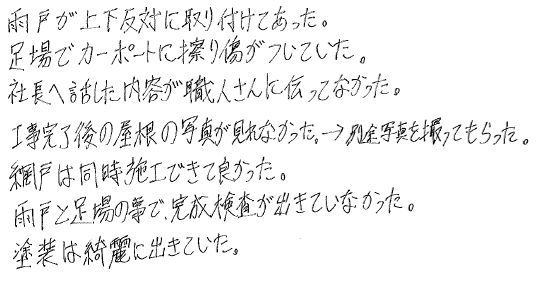 雨戸が上下反対に取り付けてあった。
足場でカーポートに擦り傷がついていた。
社長へ話した内容が職人さんに伝ってなかった。
工事完了後の屋根の写真が見れなかった。→別途写真を撮ってもらった。
網戸は同時施工できて良かった。
雨戸と足場の事で、完成検査が出きていなかった。
塗装は綺麗に出きていた。